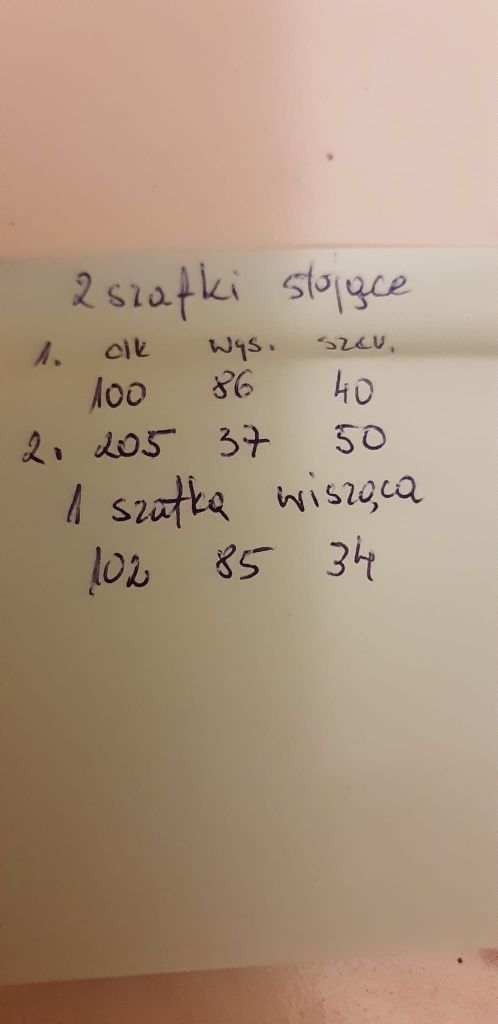 2 szafki stojące
1. dł wys. szer.
100 86 40
2. 205 37 50
1 szafka wisząca
102 85 34